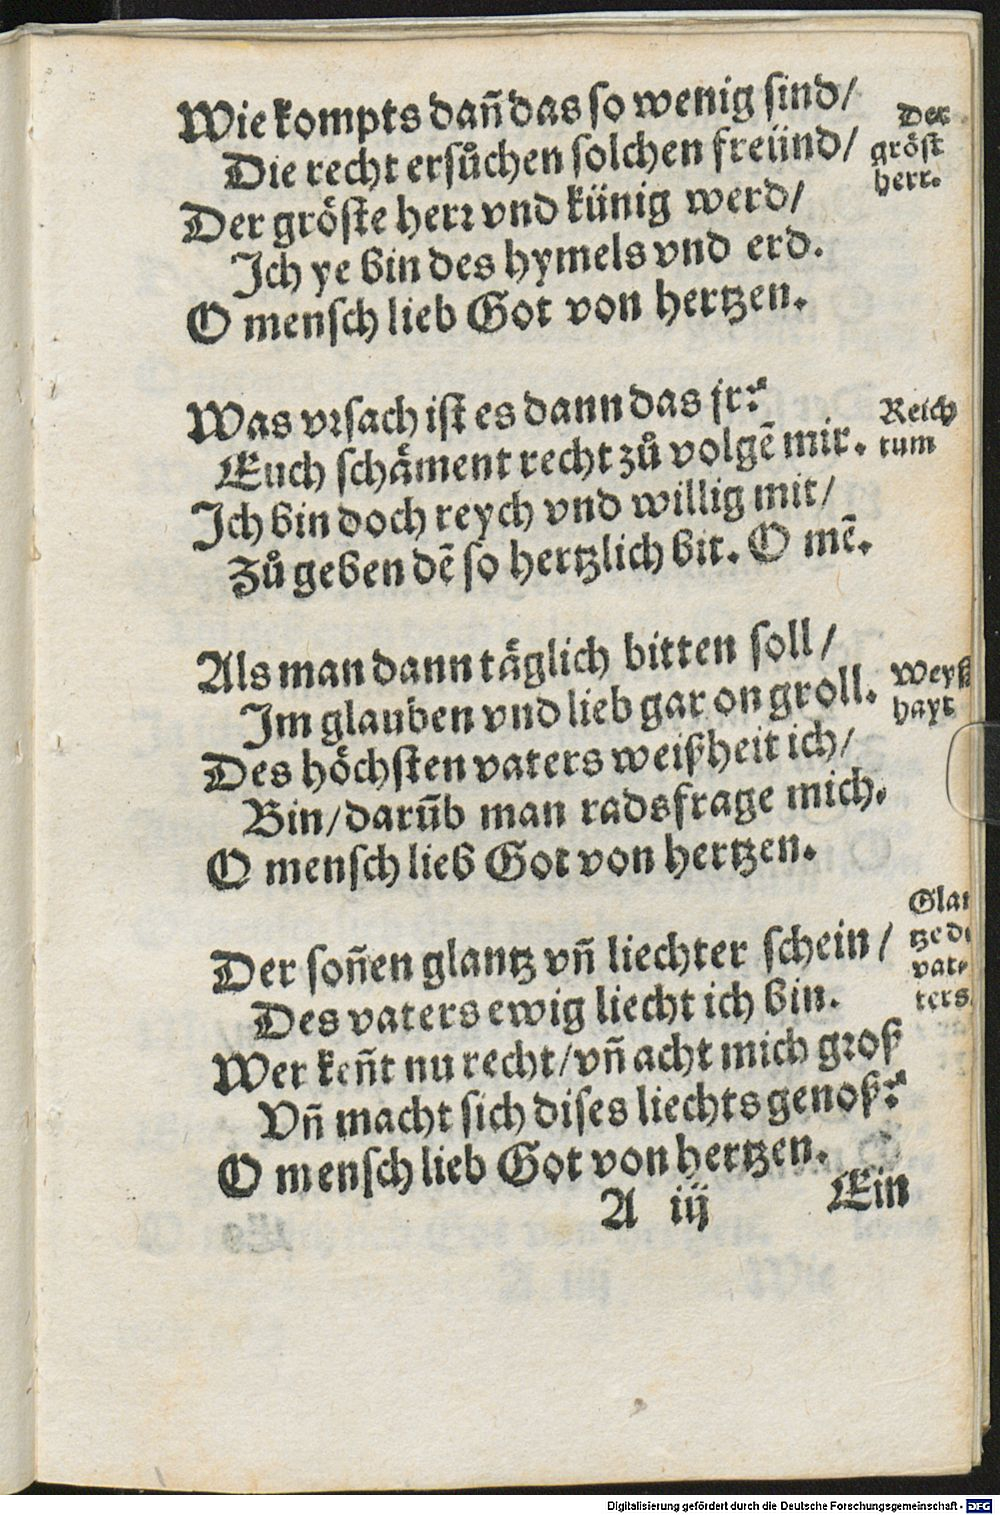 Wie kompts dañ das so wenig sind/
Die recht ersůchen solchen freünd/
Der gröste herr vnd künig werd/
Ich ye bin des hymels vnd erd.
O mensch lieb Got von hertzen.
Der
gröst
herr.
Was vrsach ist es dann das jr?
Euch schäment recht zů volgẽ mir.
Ich bin doch reych vnd willig mit/
Zů geben dẽ so hertzlich bit. O mẽ.
Reich
tum
Als man dann täglich bitten soll/
Im glauben vnd lieb gar on groll.
Des höchsten vaters weißheit ich/
Bin/darüb man radsfrage mich.
O mensch lieb Got von hertzen.
Weyß
hayt
Der soñen glantz vñ liechter schein/
Des vaters ewig liecht ich bin.
Wer keñt nu recht/vñ acht mich groß
Vñ macht sich dises liechts genoß?
O mensch lieb Got von hertzen.
Glan
tze de
vat-
ters
A iij
Ein
Digitalisierung gefördert durch die Deutsche Forschungsgemeinschaft - DFG